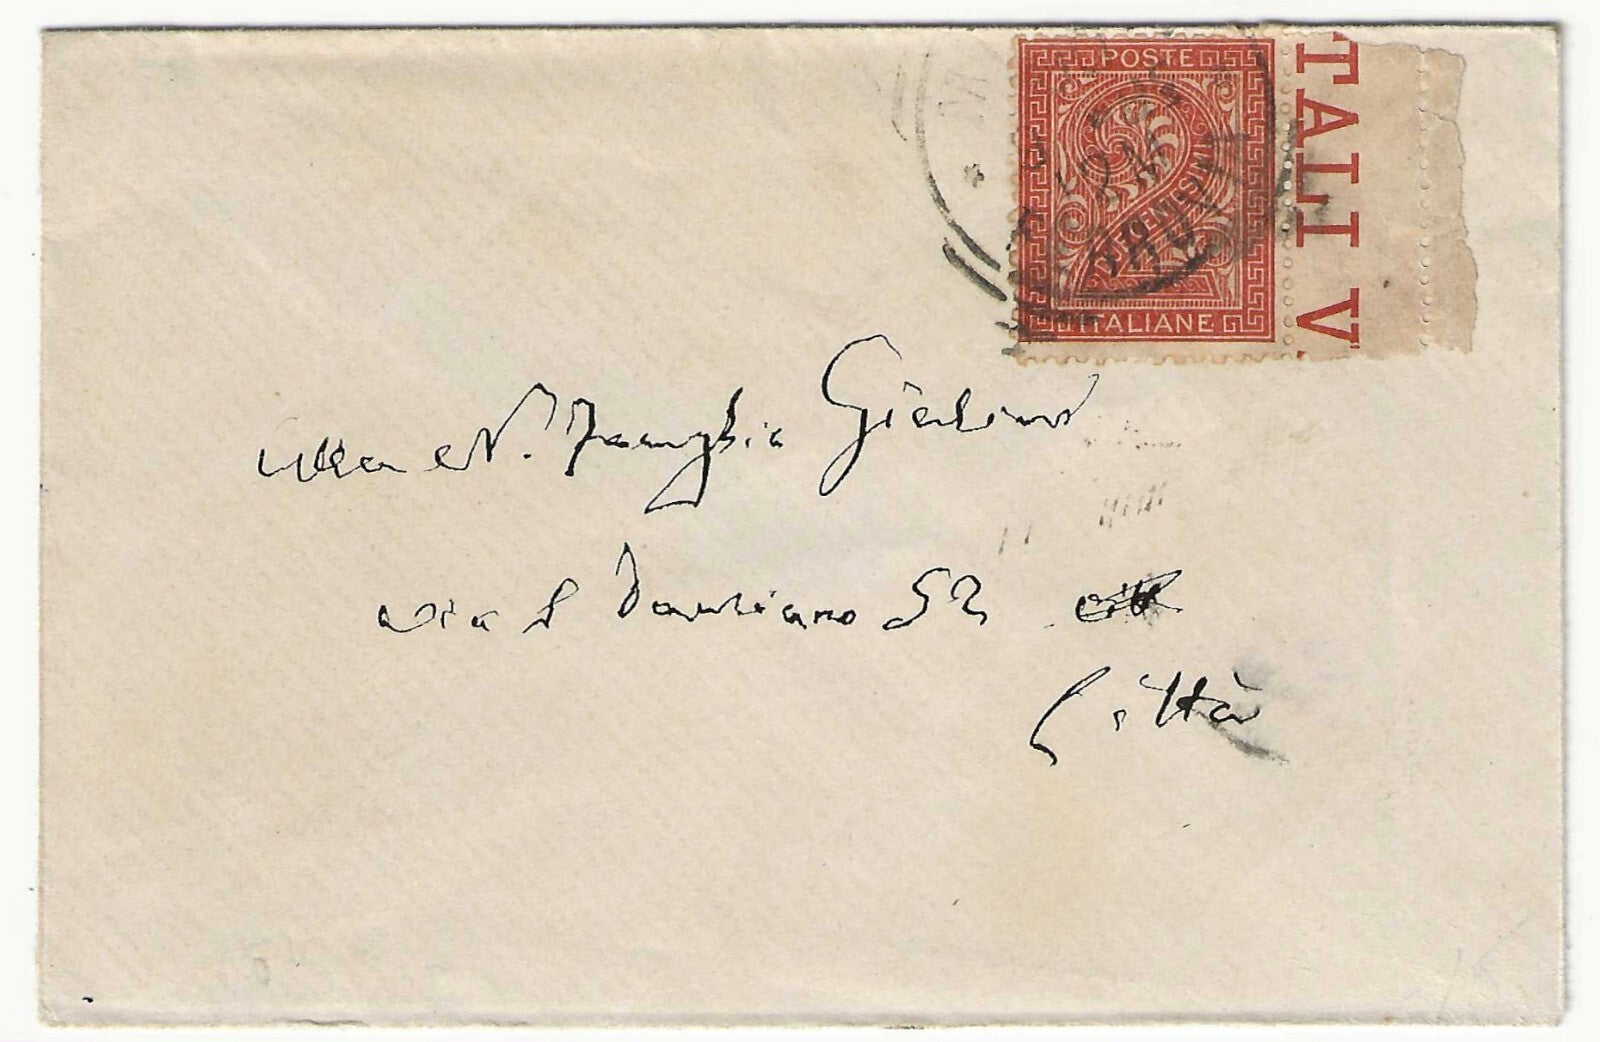 POSTE
DUE CENTESIMI
ITALIANE
TALI V
alla N. Famiglia
via S Damiano 52
Città